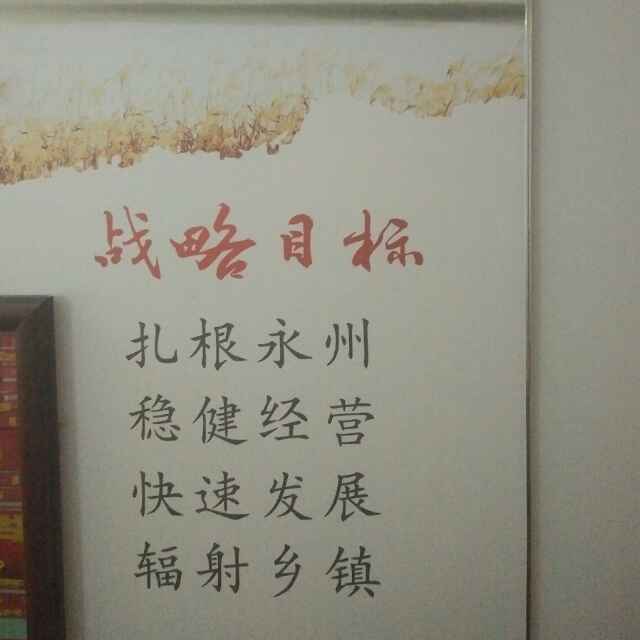 战略目标
扎根永州
稳健经营
快速发展
辐射乡镇